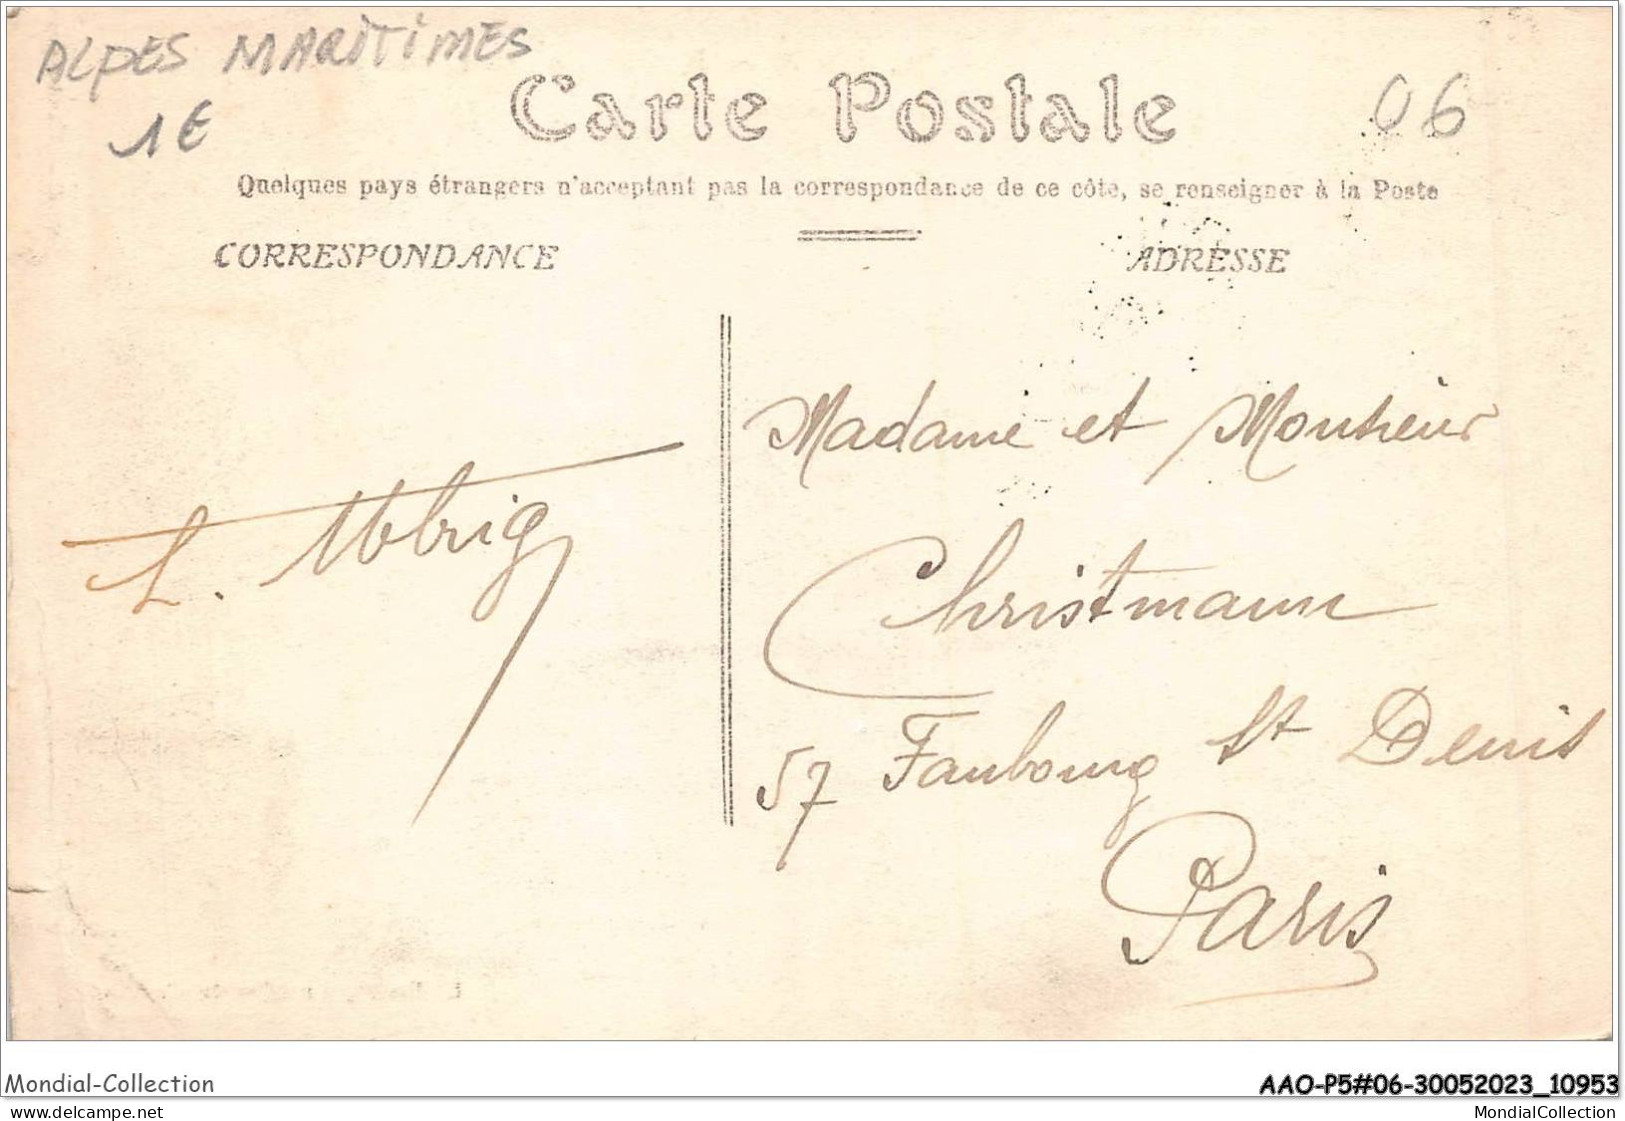 ALPES MARITIMES
1€
06
Carte Postale
Quelques pays étrangers n'acceptant pas la correspondance de ce côté, se renseigner à la Poste
CORRESPONDANCE
ADRESSE
L.
Madame et Monsieur
Christmann
57 Faubourg St Denis
Paris
Mondial-Collection
AAO-P5#06-30052023_10953
www.delcampe.net
MondialCollection